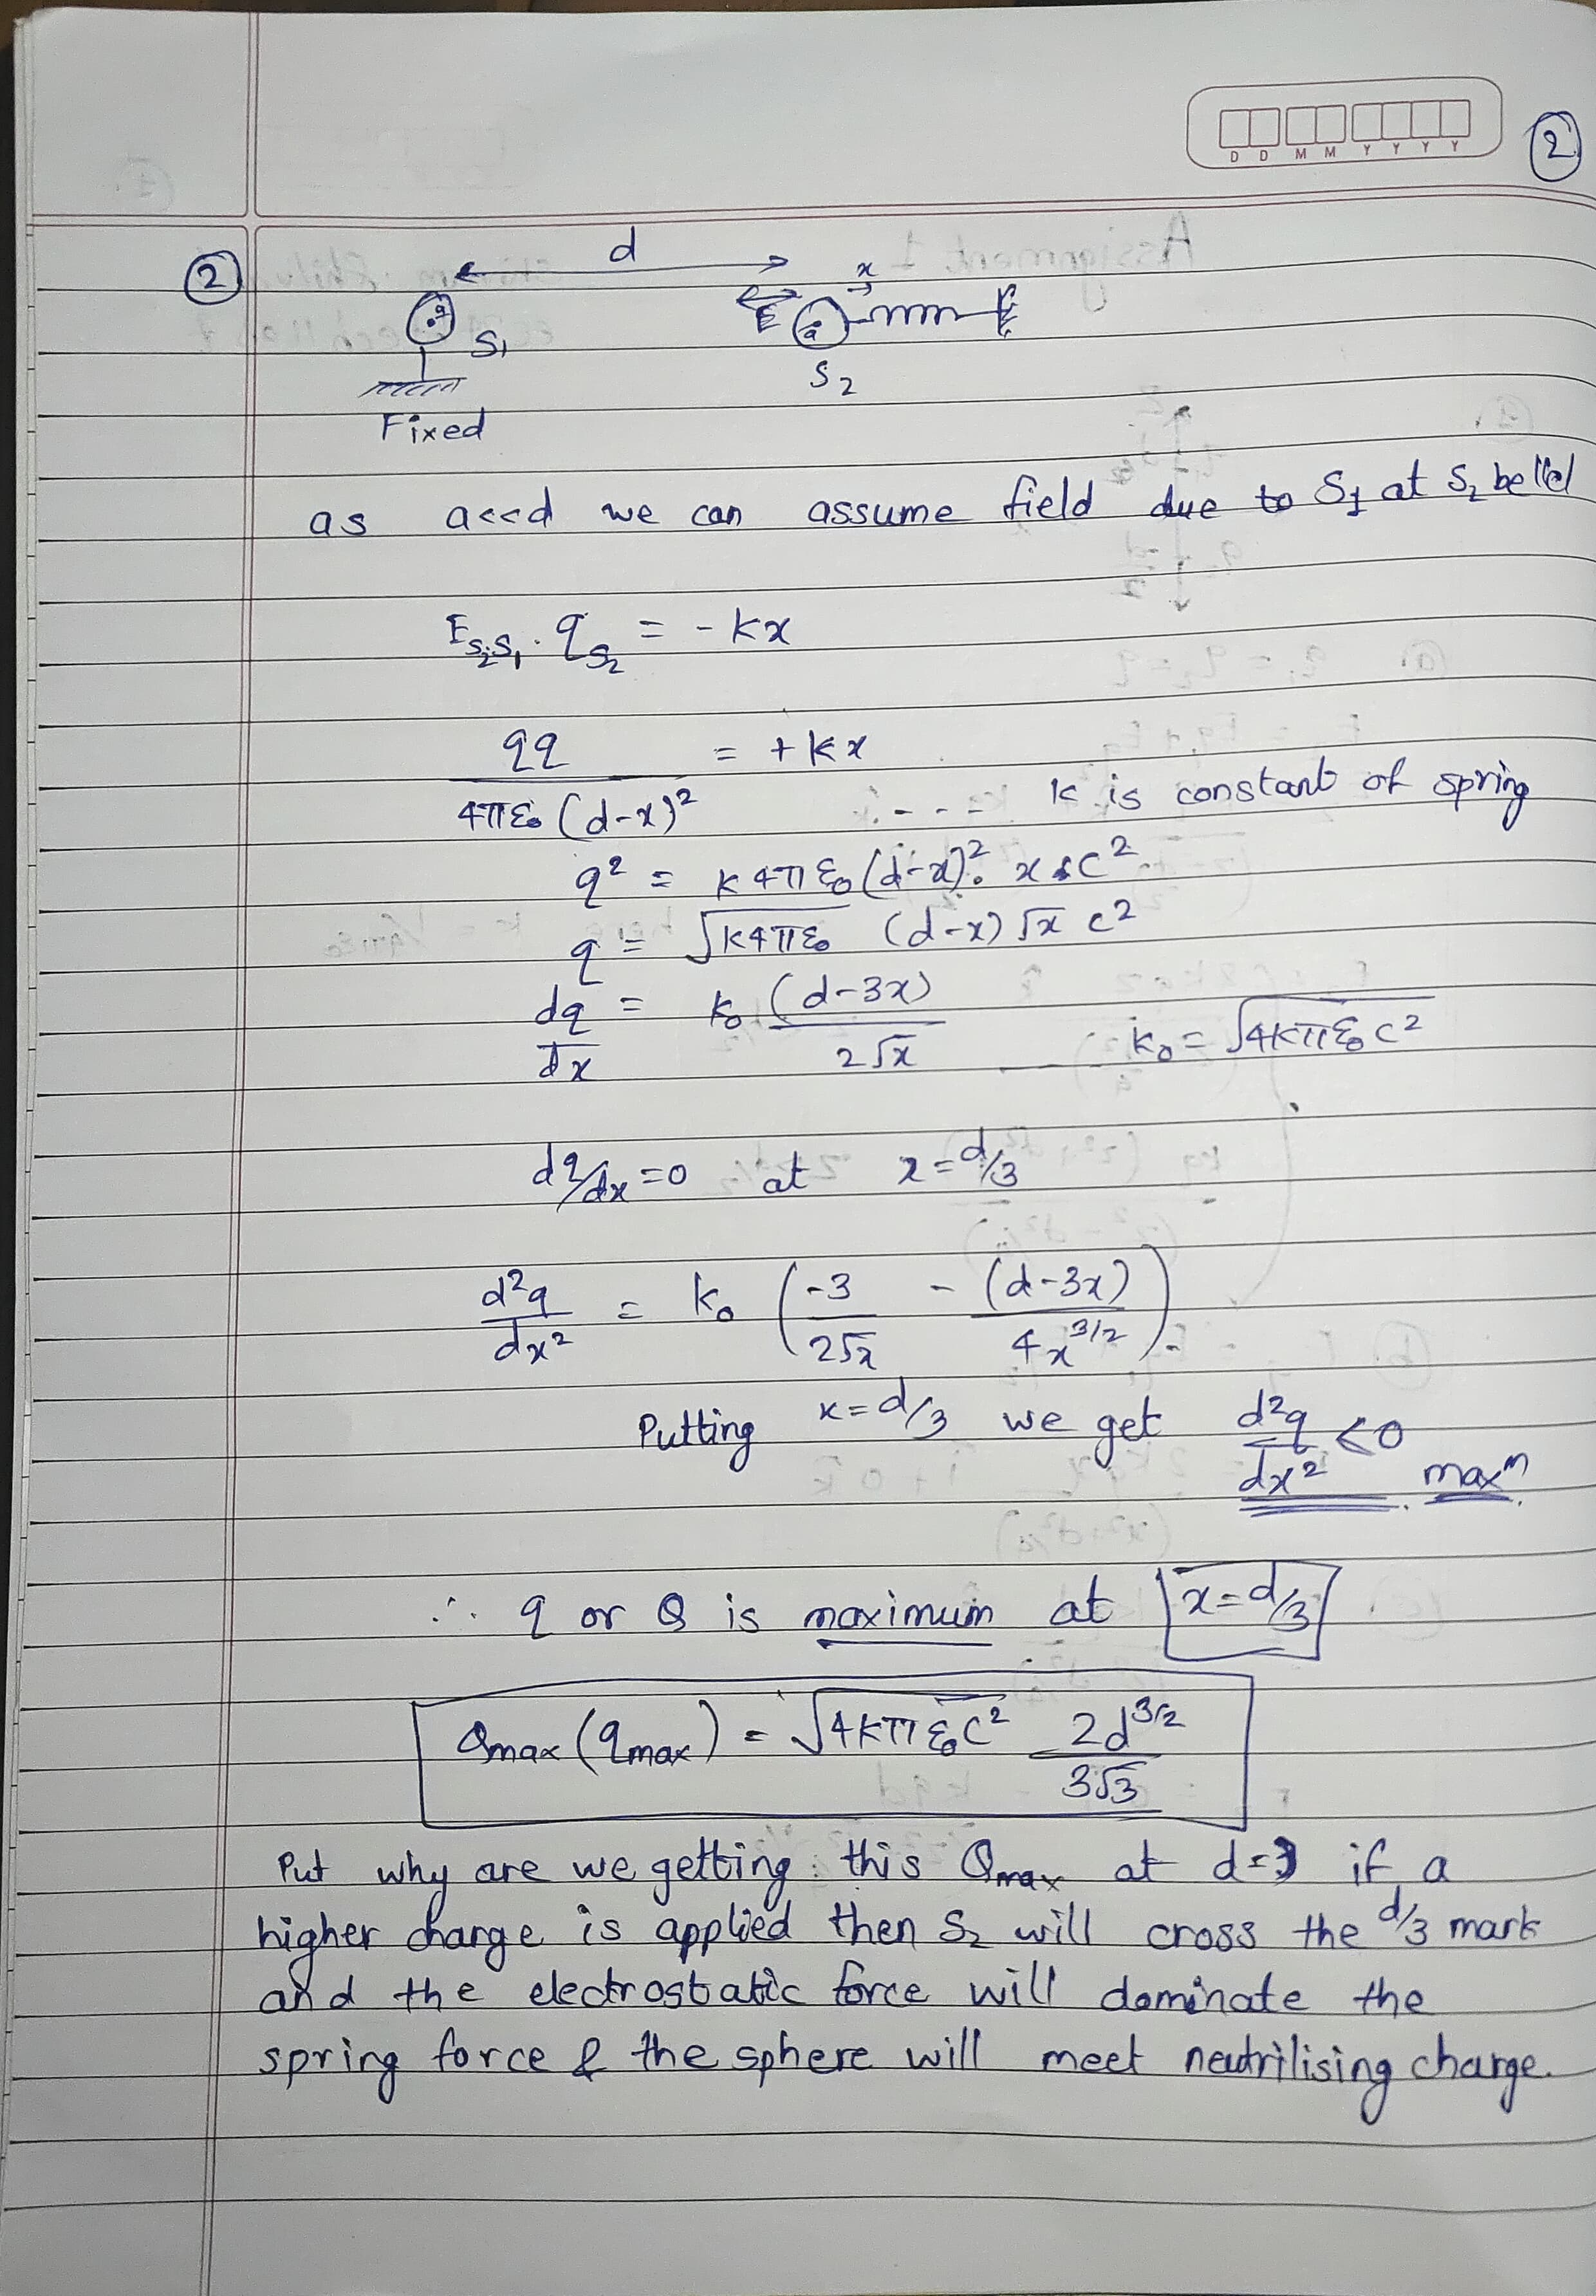 D D M M Y Y Y Y
②
②
d
x
q
S₁
E
q
S₂
Fixed
as a<<d we can assume field due to S₁ at S₂ be llel
E_S₂S₁ . q_S₂ = - kx
qq / 4πε₀(d-x)² = + kx
... k is constant of spring
q² = k4πε₀(d-x)². x C²
q = √k4πε₀ (d-x)√x c²
dq/dx = k₀ (d-3x) / 2√x
k₀ = √4kπε₀c²
dq/dx=0 at x=d/3
d²q/dx² = k₀ (-3/2√x - (d-3x)/4x^3/2).
Putting x=d/3 we get d²q/dx² <0 . maxᵐ.
∴ q or Q is maximum at x=d/3
Qmax (qmax) = √4kπε₀C² 2d^3/2 / 3√3
Put why are we getting this Qmax at d=3 if a
higher charge is applied then S₂ will cross the d/3 mark
and the electrostatic force will dominate the
spring force & the sphere will meet neutrilising charge.